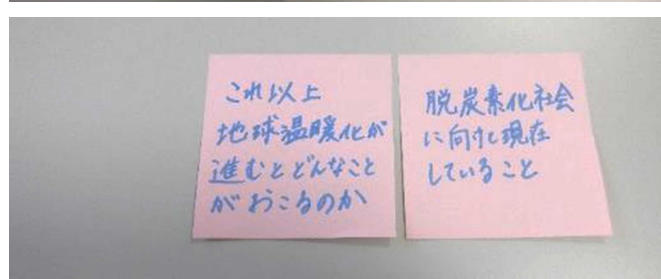 これ以上
地球温暖化が
進むとどんなこと
がおこるのか
脱炭素化社会
に向けて現在
していること